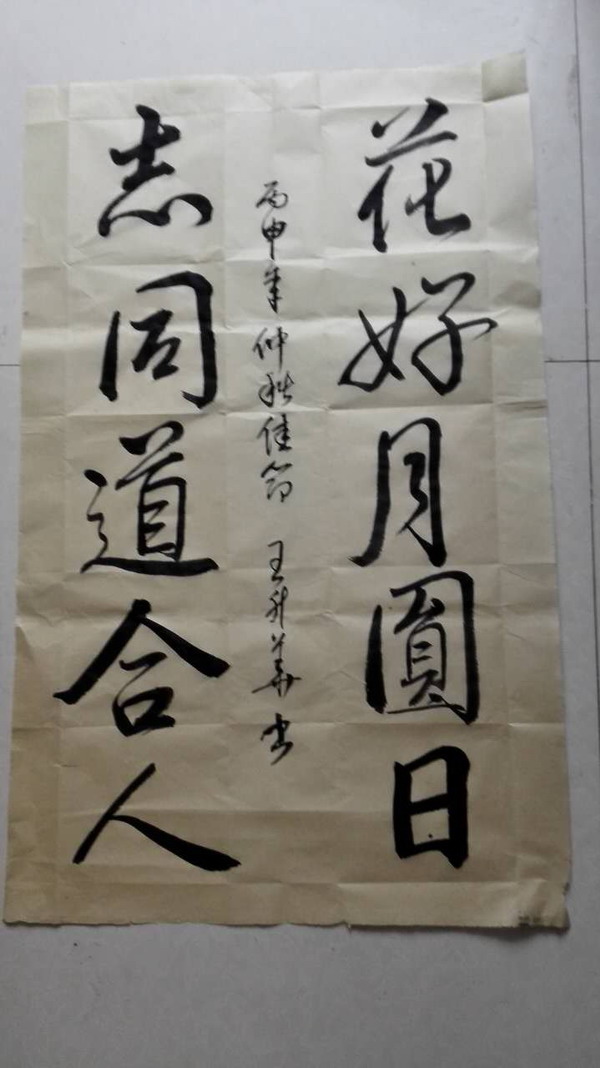 花好月圓日
丙申年仲秋佳节 王升華书
志同道合人